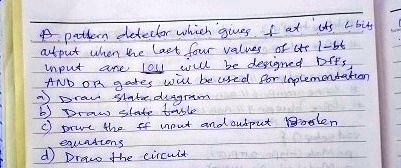 A pattern detector which gives 1 at its 1-bit
output when the last four values of its 1-bit
input are 1011 will be designed. DFFs,
AND OR gates will be used for implementation
a) Draw state diagram
b) Draw state table
c) Drive the ff input and output Boolen
equations
d) Draw the circuit